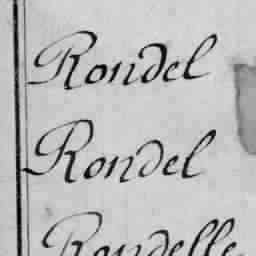 Rondel
Rondel
Rondelle